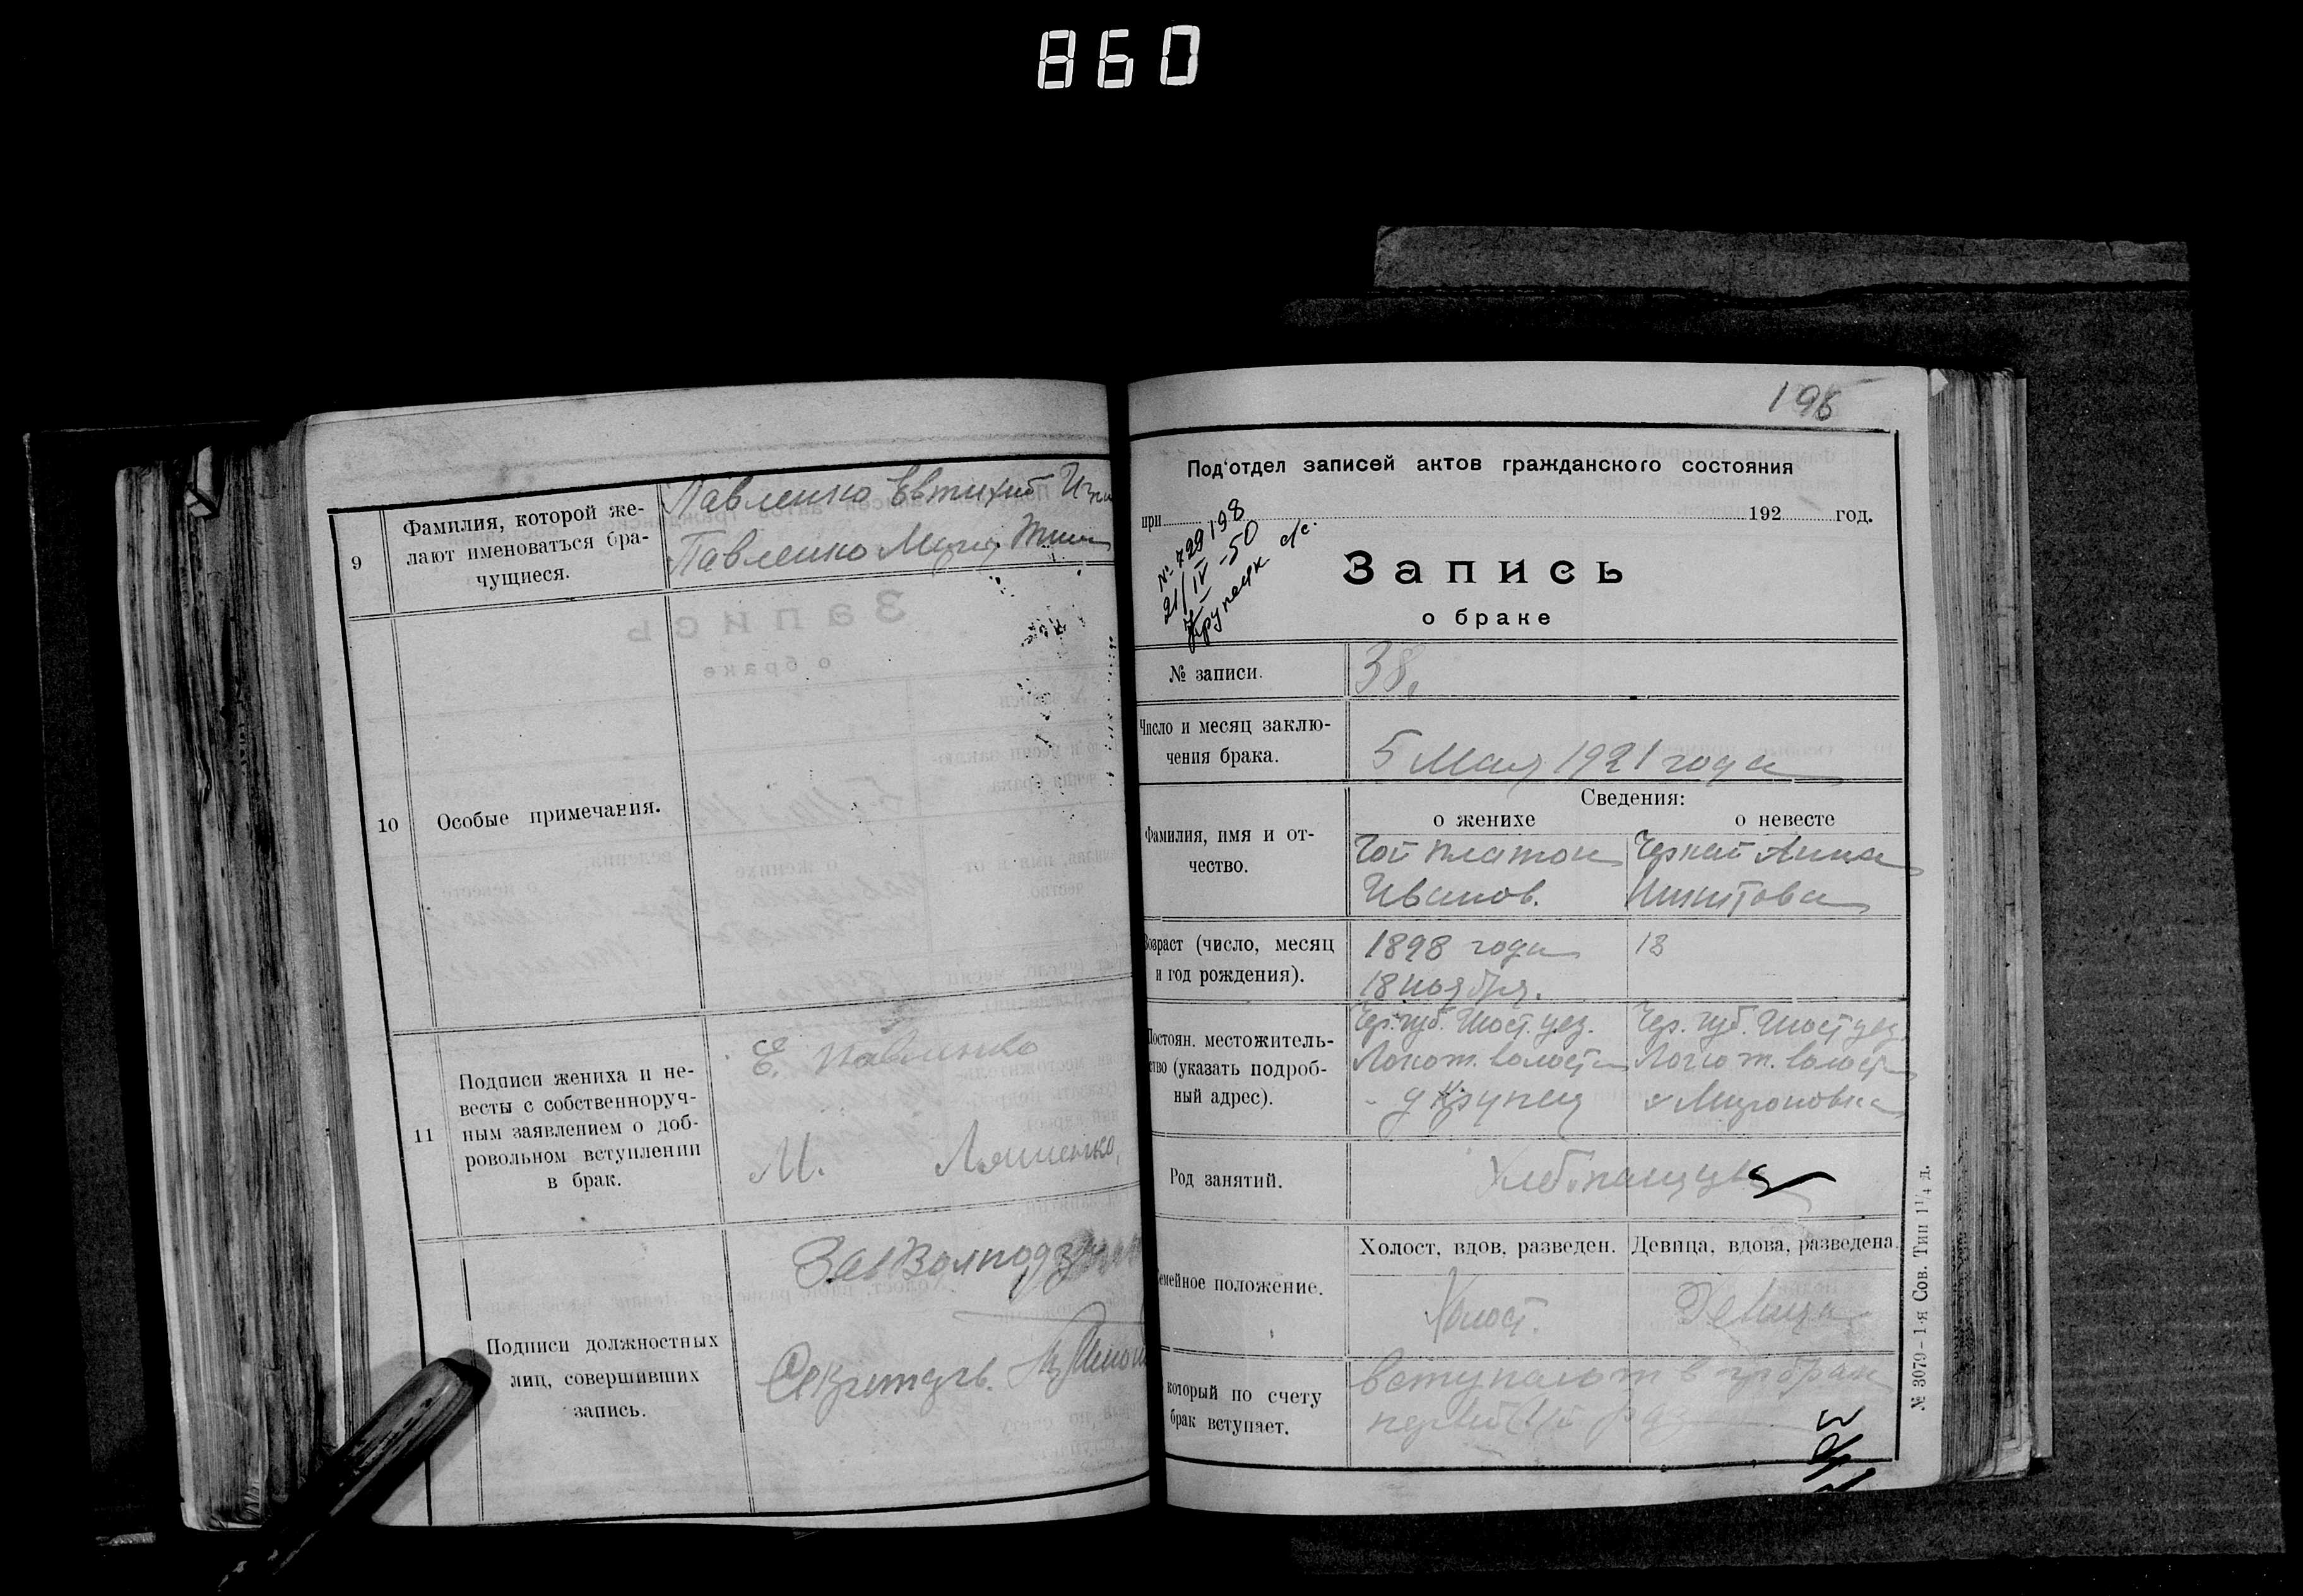 860
9
Фамилия, которой же-
лают именоваться бра-
чущиеся.
Павленко Евтихий
Павленко Мария
10
Особые примечания.
11
Подписи жениха и не-
весты с собственноруч-
ным заявлением о доб-
ровольном вступлении
в брак.
Е. Павленко
М. Ляшенко
Подписи должностных
лиц, совершивших
запись.
196
Под'отдел записей актов гражданского состояния
при 192 год.
№ 729/98
21/IV-50
Крупецк с/с.
Запись
о браке
№ записи.
38.
Число и месяц заклю-
чения брака.
5 Мая 1921 года
Сведения:
о женихе
о невесте
Фамилия, имя и от-
чество.
Гой Платон
Иванов.
Черней Анна
Никитова
Возраст (число, месяц
и год рождения).
1898 года
18 ноября.
18
Постоян. местожитель-
ство (указать подроб-
ный адрес).
Чер. губ. Шост. уез.
волости
д Крупец
Чер. губ. Шост уез.
волости
Мироновка
Род занятий.
Хлебопашцы
Семейное положение.
Холост, вдов, разведен.
Девица, вдова, разведена.
Холост.
Девица
который по счету
брак вступает.
вступают в брак
первый раз
№ 3079-1-я Сов. Тип 1 1/4 д.